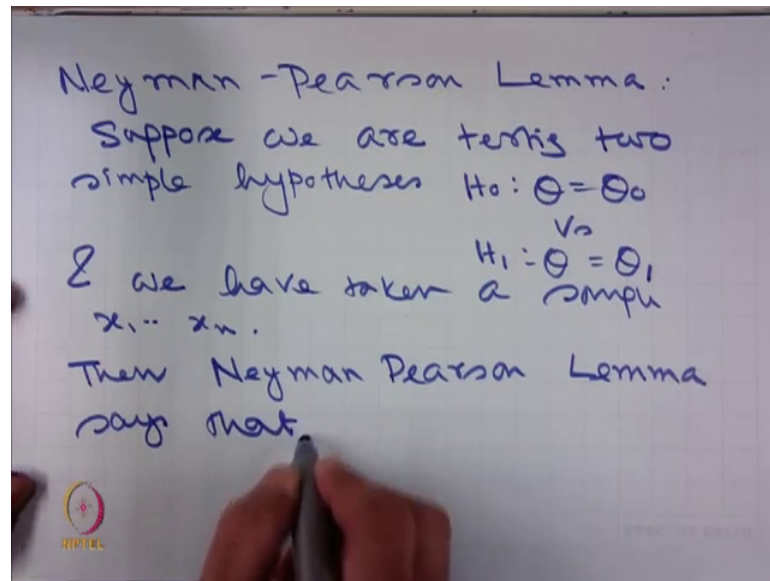 Neyman - Pearson Lemma :
Suppose we are testing two
simple hypotheses H₀ : θ = θ₀
Vs
H₁ : θ = θ₁
& we have taken a sample
x₁ .. xₙ .
Then Neyman Pearson Lemma
says that
NPTEL